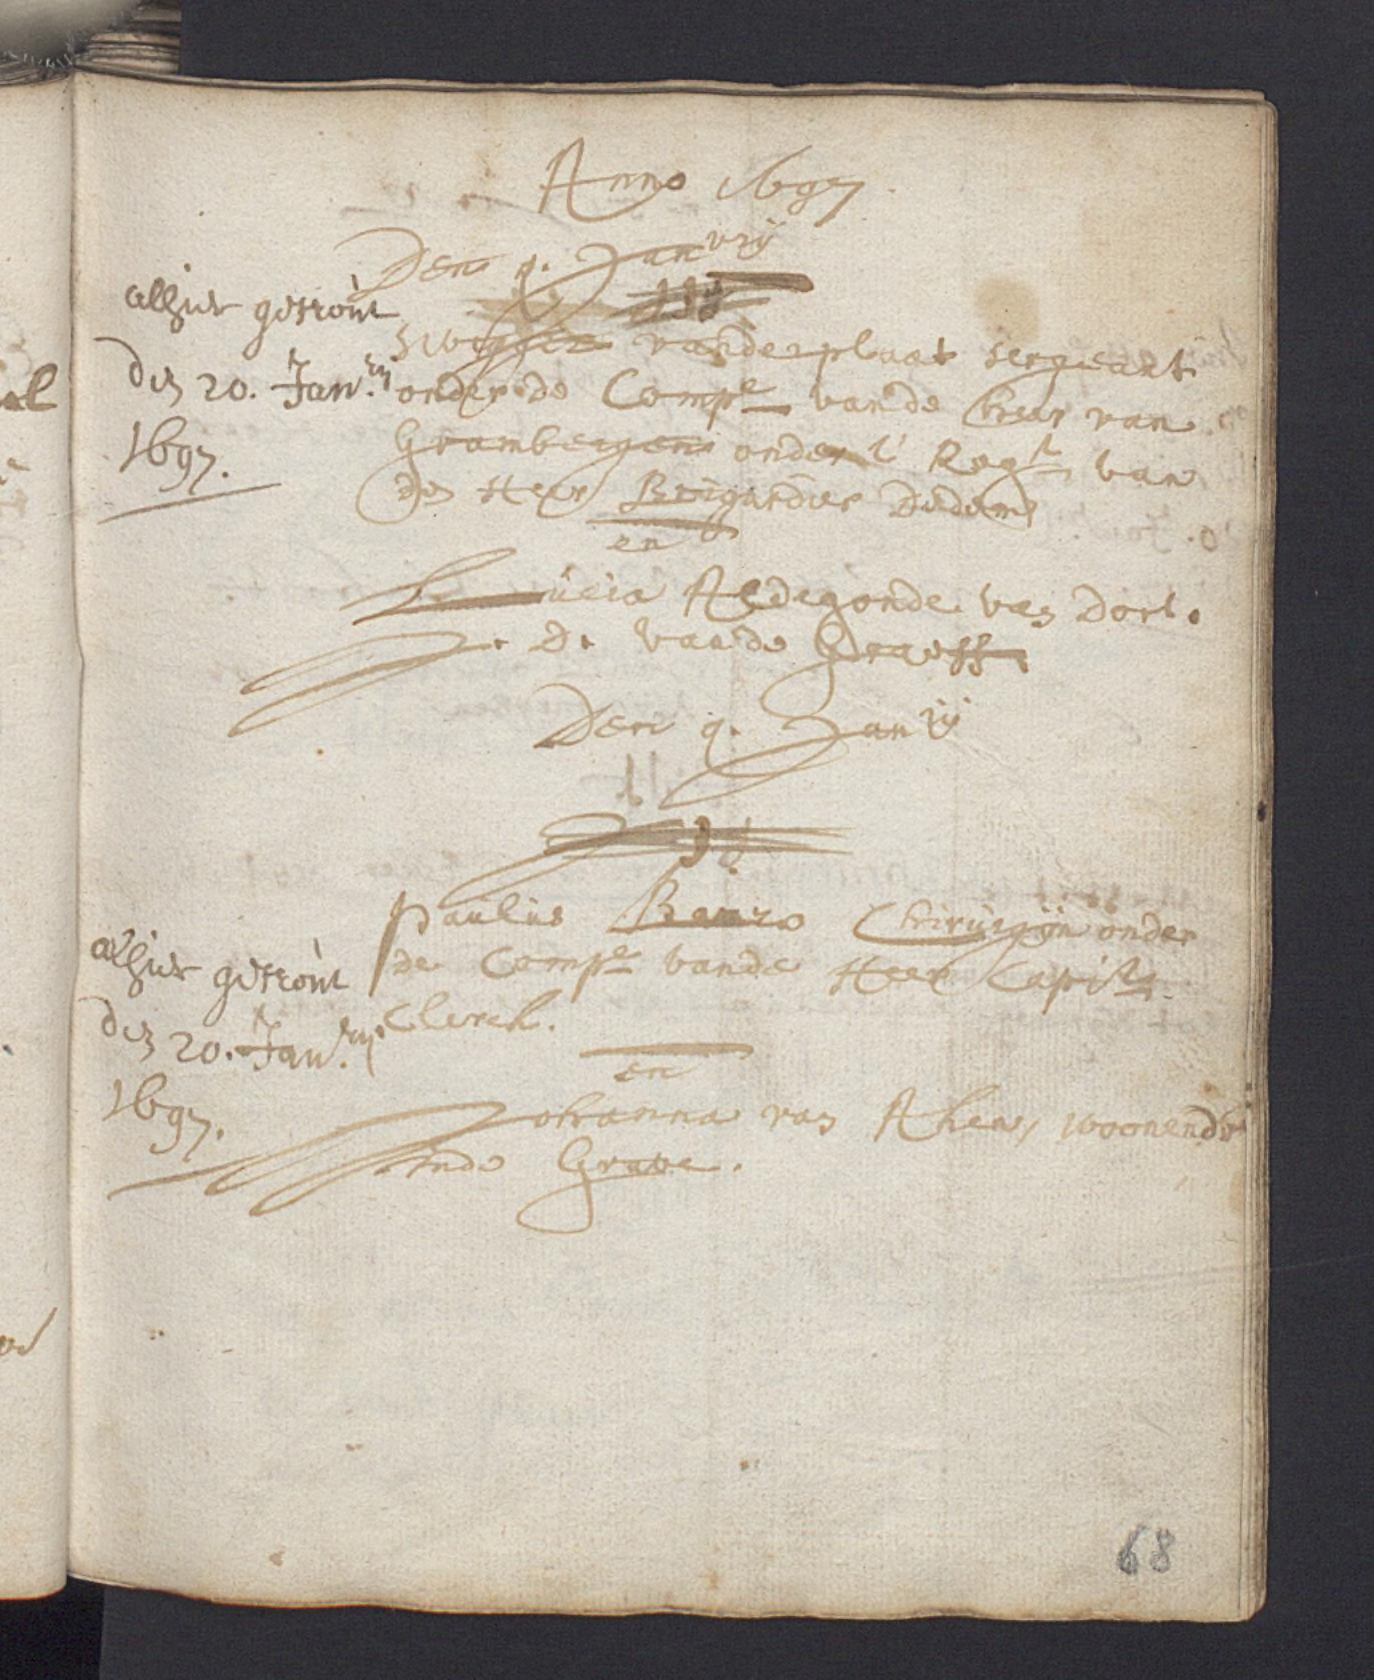 Anno 1697
Den 9. Janvrij
alhier getrout
den 20. Jan.rij
1697.
Zweer vander plaat sergeant
onder de Compe vande Heer van
Grambergen ondert Regt van
de Heer Brigardier Dedem
en
Lucia Aldegonde van Dort.
J. D. vande Graeff
Den 9. Janrij
Paulus Chirurgijn onder
de Compe vande Heer Capit
Clerck.
alhier getrout
den 20. Jan.rij
1697.
en
Johanna van Rhene, woonende
inde Grave.
68